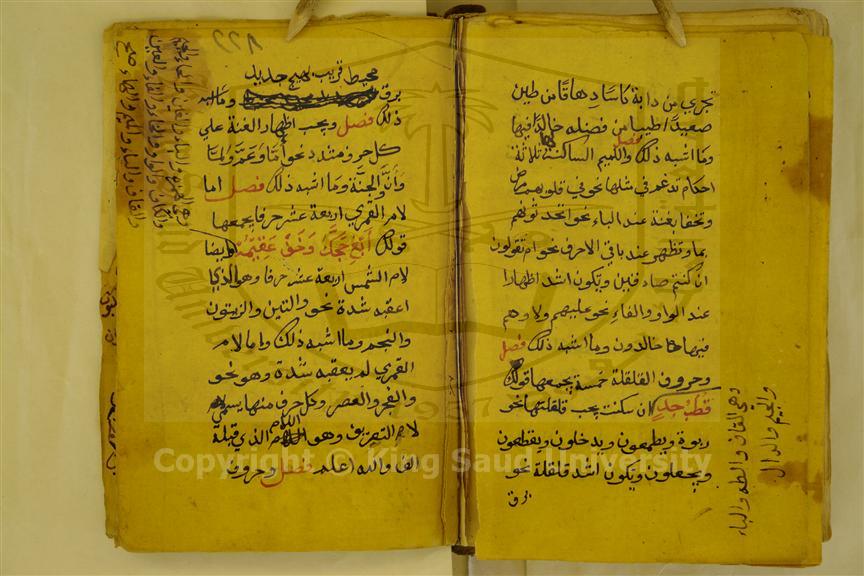 تجري من دابة كاسا دهاقا من طين
صعيدا طيبا من فضله خالدا فيها
وما اشبه ذلك فصل والميم الساكنة لها ثلاثة
احكام تدغم في مثلها نحو في قلوبهم مرض
وتخفا بغنة عند الباء نحو اتحدثونهم
بما وتظهر عند باقي الاحرف نحو ام تقولون
ان كنتم صادقين ويكون اشد اظهارا
عند الواو والفاء نحو عليهم ولا وهم
فيها خالدون وما اشبه ذلك فصل
وحروف القلقلة خمسة يجمعها قولك
قطب جد ان سكنت يجب قلقلتها نحو
ربوة ويطمعون ويدخلون ويقطعون
ويجعلون ويكون اشد قلقلة نحو
برق
وهي القاف والطاء والباء
والجيم والدال
١٢٢
محيط قريب بهيج جديد
برق وما اشبه
ذلك فصل ويجب اظهار الغنة علي
كل حرف مشدد نحو اما وعم ولما
وان والجنة وما اشبه ذلك فصل اما
لام القمري اربعة عشر حرفا يجمعها
قولك ابغ حجك وخف عقيمه وايضا
لام الشمس اربعة عشر حرفا وهو الذي
اعقبه شدة نحو والتين والزيتون
والنجم وما اشبه ذلك واما لام
القمري لم يعقبه شدة وهو نحو
والفجر والعصر وكل حرف منها يسمي
لام التعريف وهو اللام الذي قبله
الف والله اعلم فصل وحروف
وهي الهمزة والباء والغين والحاء والجيم
والكاف والواو والخاء والفاء والعين
والقاف والياء والميم والهاء صح
Copyright © King Saud University
1957